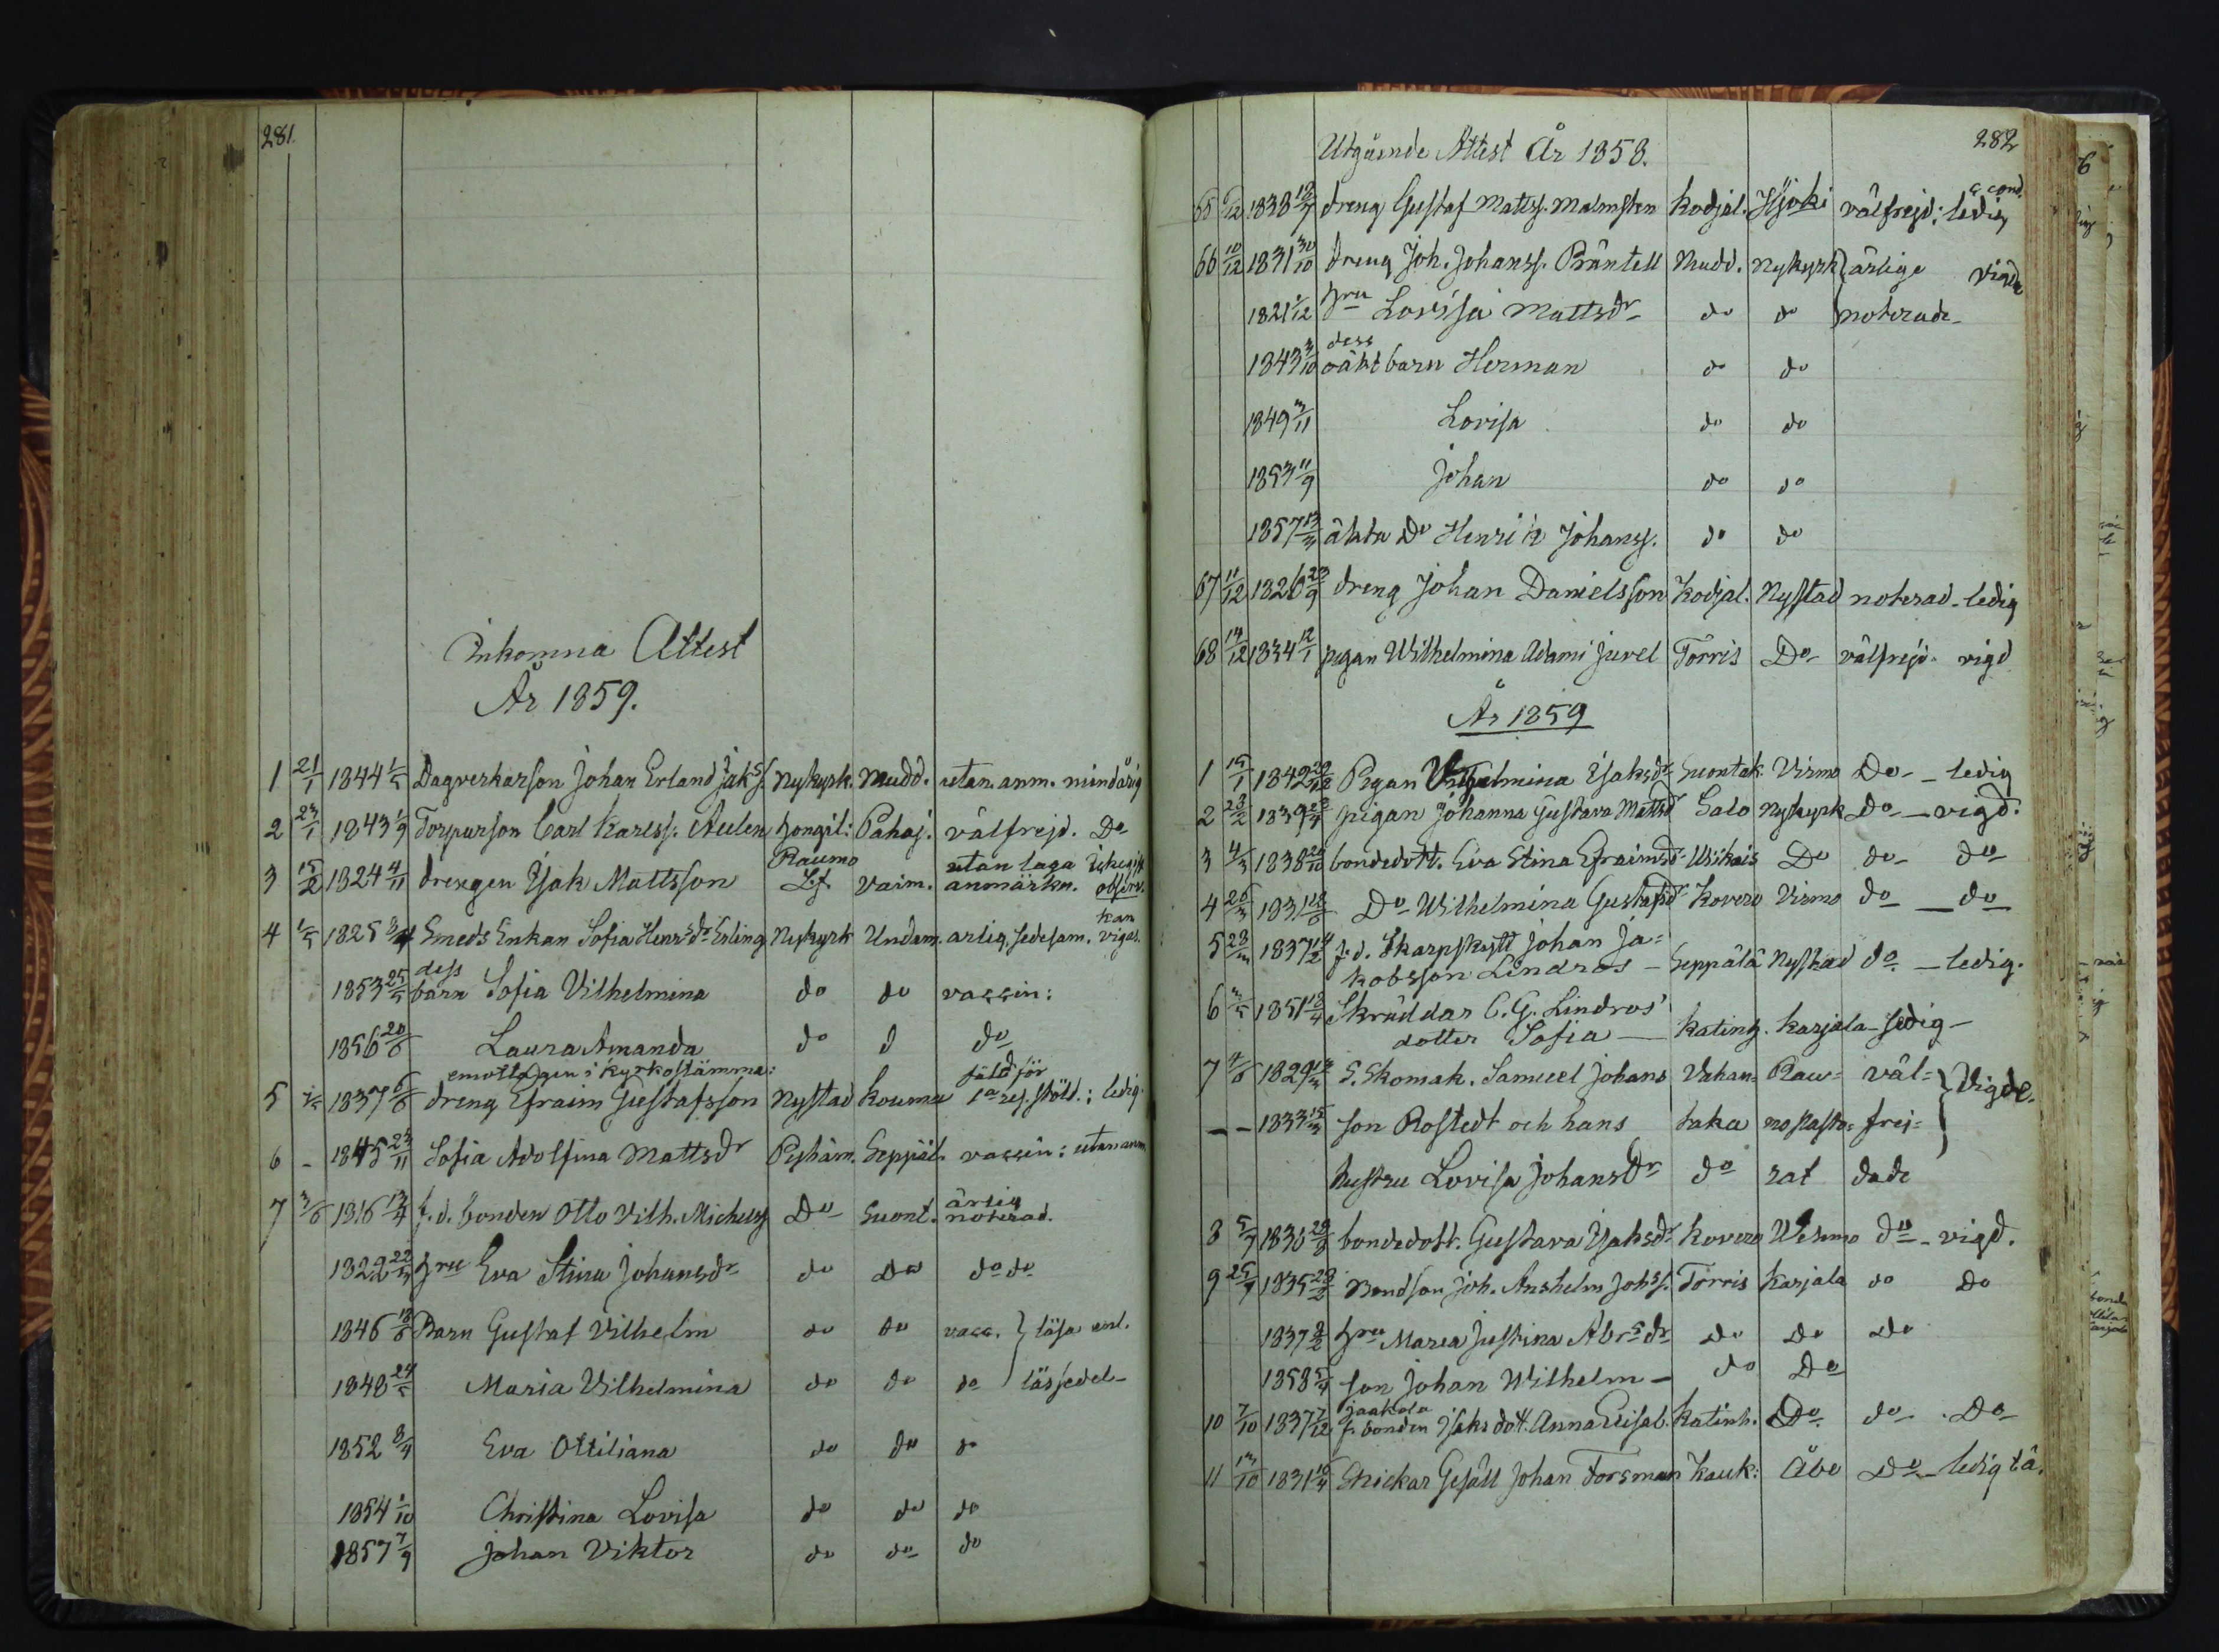 281.
Inkomna Attest
År 1859.
1 21/1 1844 1/5 Dagverkarson Johan Erland Isaks. Nykyrk. Mudd. utan anm. mindårig
2 23/1 1843 1/9 Torparson Carl Karlss. Aulen Hongil: Pahaj. välfrejd. Do
3 15/2 1824 4/11 drengen Isak Mattsson Raumo L.f. Vaim. utan laga anmärkn.
4 1/5 1825 Smeds Enkan Sofia Henrsdr Erling Nykyrk Undam. ärlig, sedesam. kan vigas.
1853 25/5 dess barn Sofia Vilhelmina do do vaccin:
1856 20/6 Laura Amanda do d do
emottagen i kyrkostämma:
5 1837 6/6 dreng Efraim Gustafsson Nystad Kouma fäld för 1a res. stöld.; ledig.
6 - 1845 25/11 Sofia Adolfina Mattsdr Pyhäm. Seppäl. vaccin: utan anm
7 3/6 1816 13/4 f.d. bonden Otto Vilh. Michelss Do Suont. ärlig noterad.
1822 22/3 Hru Eva Stina Johansdr do do do do
1846 18/6 Barn Gustaf Vilhelm do do vacc. } läsa enl.
1848 24/5 Maria Vilhelmina do do do } läsesedel
1852 8/4 Eva Ottiliana do do do
1854 1/10 Christina Lovisa do do do
1857 7/9 Johan Viktor do do do
282
Utgående Attest År 1858.
65 6/12 1838 12/7 dreng Gustaf Mattss. Malmsten Kodjal. Hjoki välfrejd; ledig
66 10/12 1831 30/10 dreng Joh. Johanss. Bräntell Mudd. Nykyrk ärlige vigde
1821 1/12 Hru Lovisa Mattsdr do do noterade
1843 3/10 dess oäkt barn Herman do do
1849 3/11 Lovisa do do
1853 11/9 Johan do do
1857 13/3 äkta Do Henrik Johanss. do do
67 11/12 1826 23/9 dreng Johan Danielsson Kodjal. Nystad noterad. ledig
68 14/12 1834 12/1 pigan Wilhelmina Adami Jurel Torris Do välfrejd. vigd
År 1859
1 15/1 1842 Pigan Vilhelmina Isaksdr Suontak. Virmo Do - ledig
2 23/2 1839 pigan Johanna Gustava Mattsd Salo Nykyrk Do - vigd.
3 4/3 1838 20/10 bondedott. Eva Stina Efraimsdr Wiikais Do do do
4 26/3 1831 28/6 Do Wilhelmina Gustafsdr Kovero Virmo do - do
5 28/3 1837 14/2 f.d. Skarpskytt Johan Ja=
kobsson Lindros - Seppälä Nystad do. - ledig.
6 3/5 1851 18/4 Skräddar C.G. Lindros'
dotter Sofia - Katinh. Karjala - ledig -
7 4/6 1829 S. Skomak. Samuel Johans Vahan= Rau= väl= } Vigde.
- - 1833 15/3 son Rostedt och hans taka mo Pasto= frej=
hustru Lovisa Johansdr do rat dade
8 5/7 1836 29/8 bondedott. Gustava Isaksdr Kovero Wirmo do - vigd.
9 25/9 1835 28/2 Bondson Joh. Anshelm Johss. Torris Karjala do Do
1837 2/2 Hru Maria Justina Abrsdr do do do
1858 5/4 son Johan Wilhelm - do Do
10 7/10 1837 7/12 Jaakola f. bonden Isaks dott. Anna Elisab. Katinh. Do. do Do
11 13/10 1831 Snickar Gesäll Johan Forsman Kauk: Åbo Do - ledig